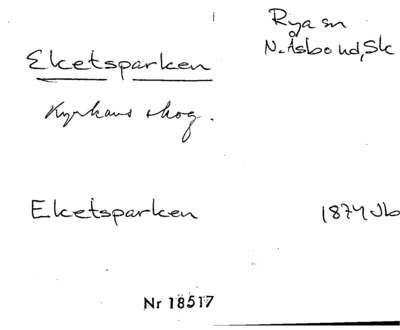 Rya sn
Eketsparken
N. Åsbo hd, Sk
Kyrkans skog.
Eketsparken 1874 Jb
Nr 18517